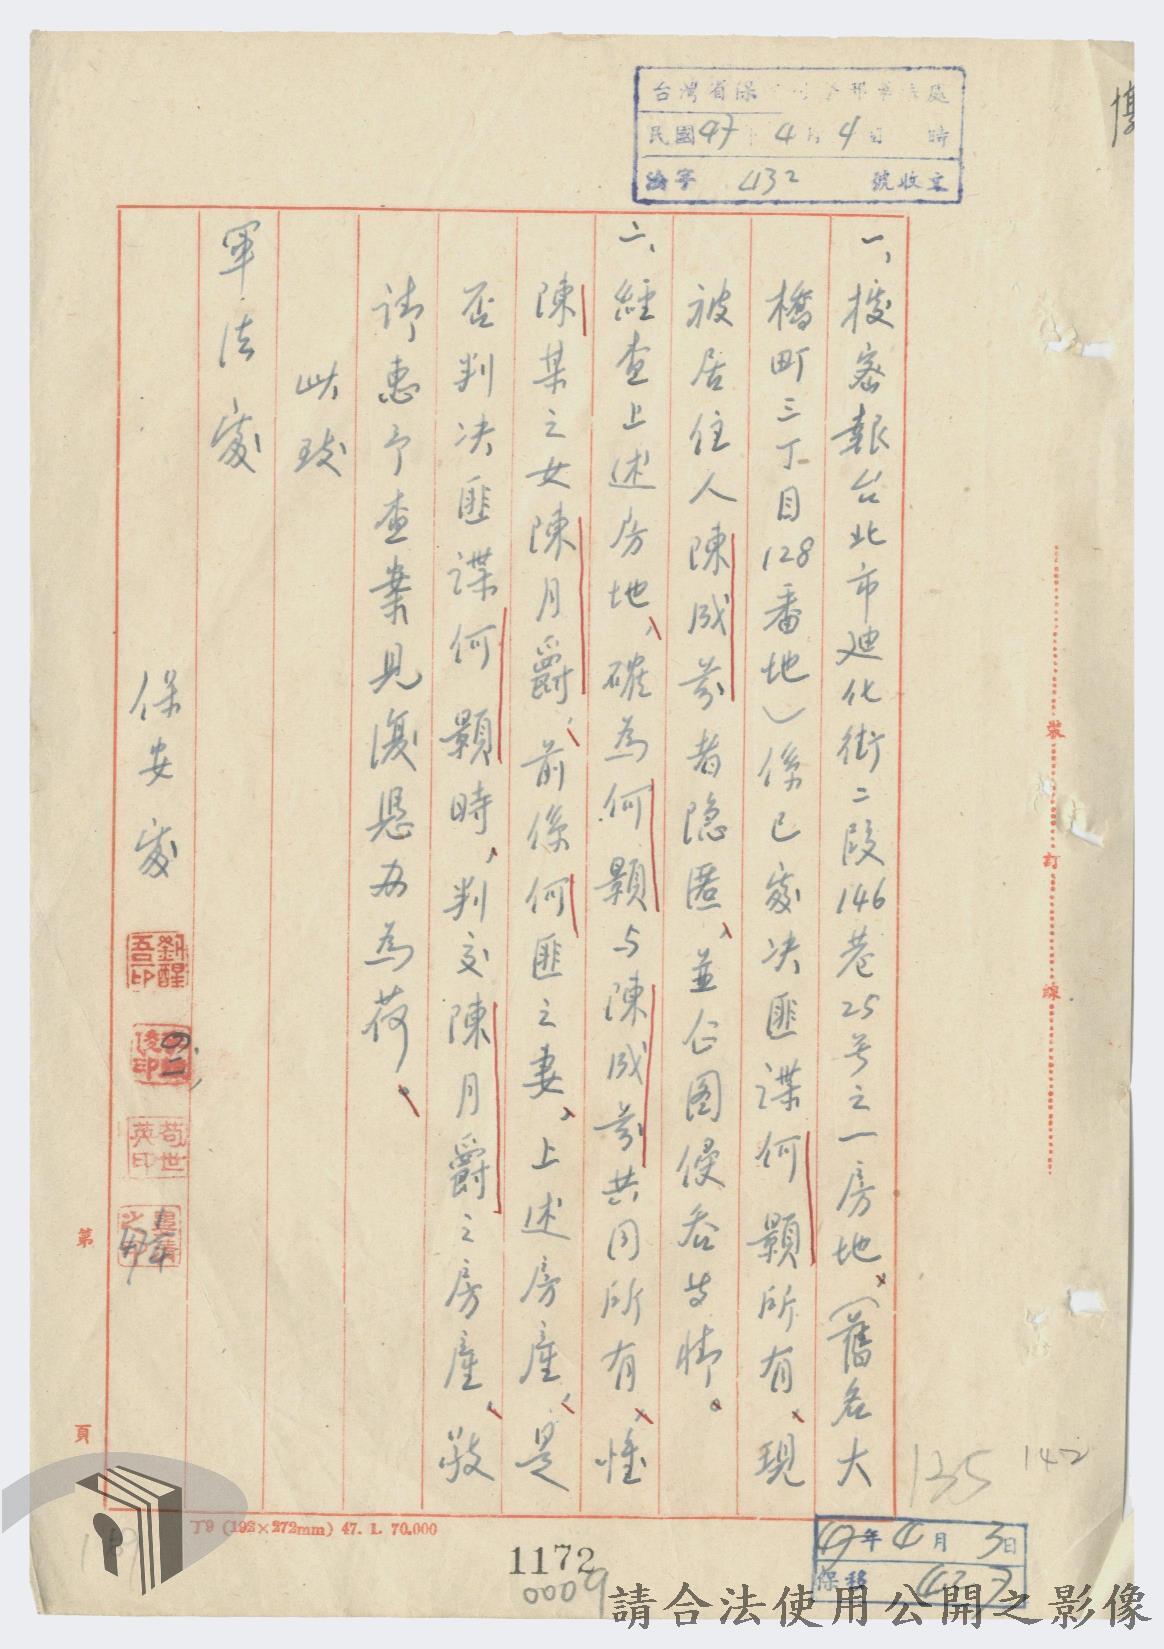 台灣省保
民國47年4月4日 時
字 432 號收文
一、據密報台北市迪化街二段146巷25号之一房地、(舊名大
橋町三丁目128番地)係已處决匪諜何顯所有、現
被居住人陳成芬者隐匿、並企图侵吞等情。
二、經查上述房地、確為何顯与陳成芬共同所有、惟
陳某之女陳月爵、前係何匪之妻、上述房產、是
否判决匪諜何顯時、判交陳月爵之房產、敬
請惠予查案見復恳办為荷。
此致
軍法處
保安處
劉醒吾印
苟世英印
裝
訂
線
第
頁
丁9 (192×272mm) 47. 1. 70.000
1172
0009
135
142
47年4月3日
保移
請合法使用公開之影像